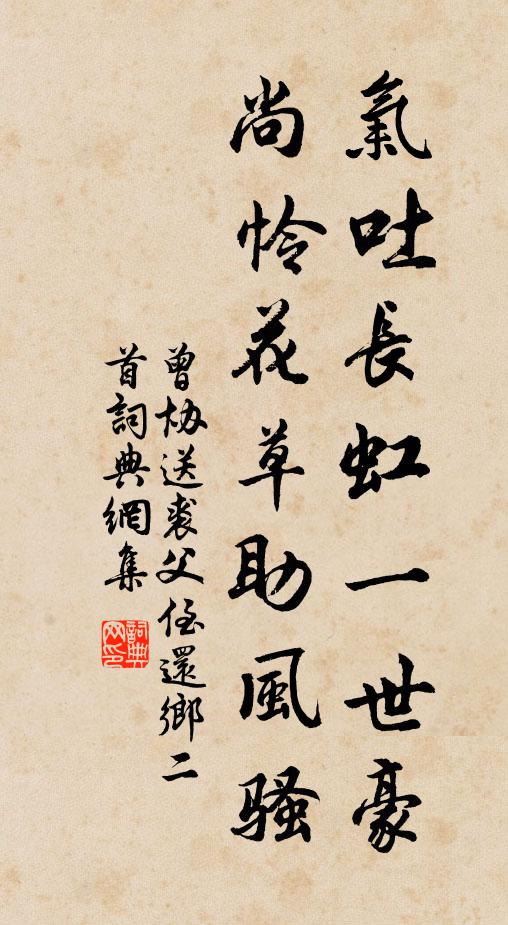 氣吐長虹一世豪
尚怜花草助風騷
曾协送裘父侄還鄉二
首詞典網集
詞典网印